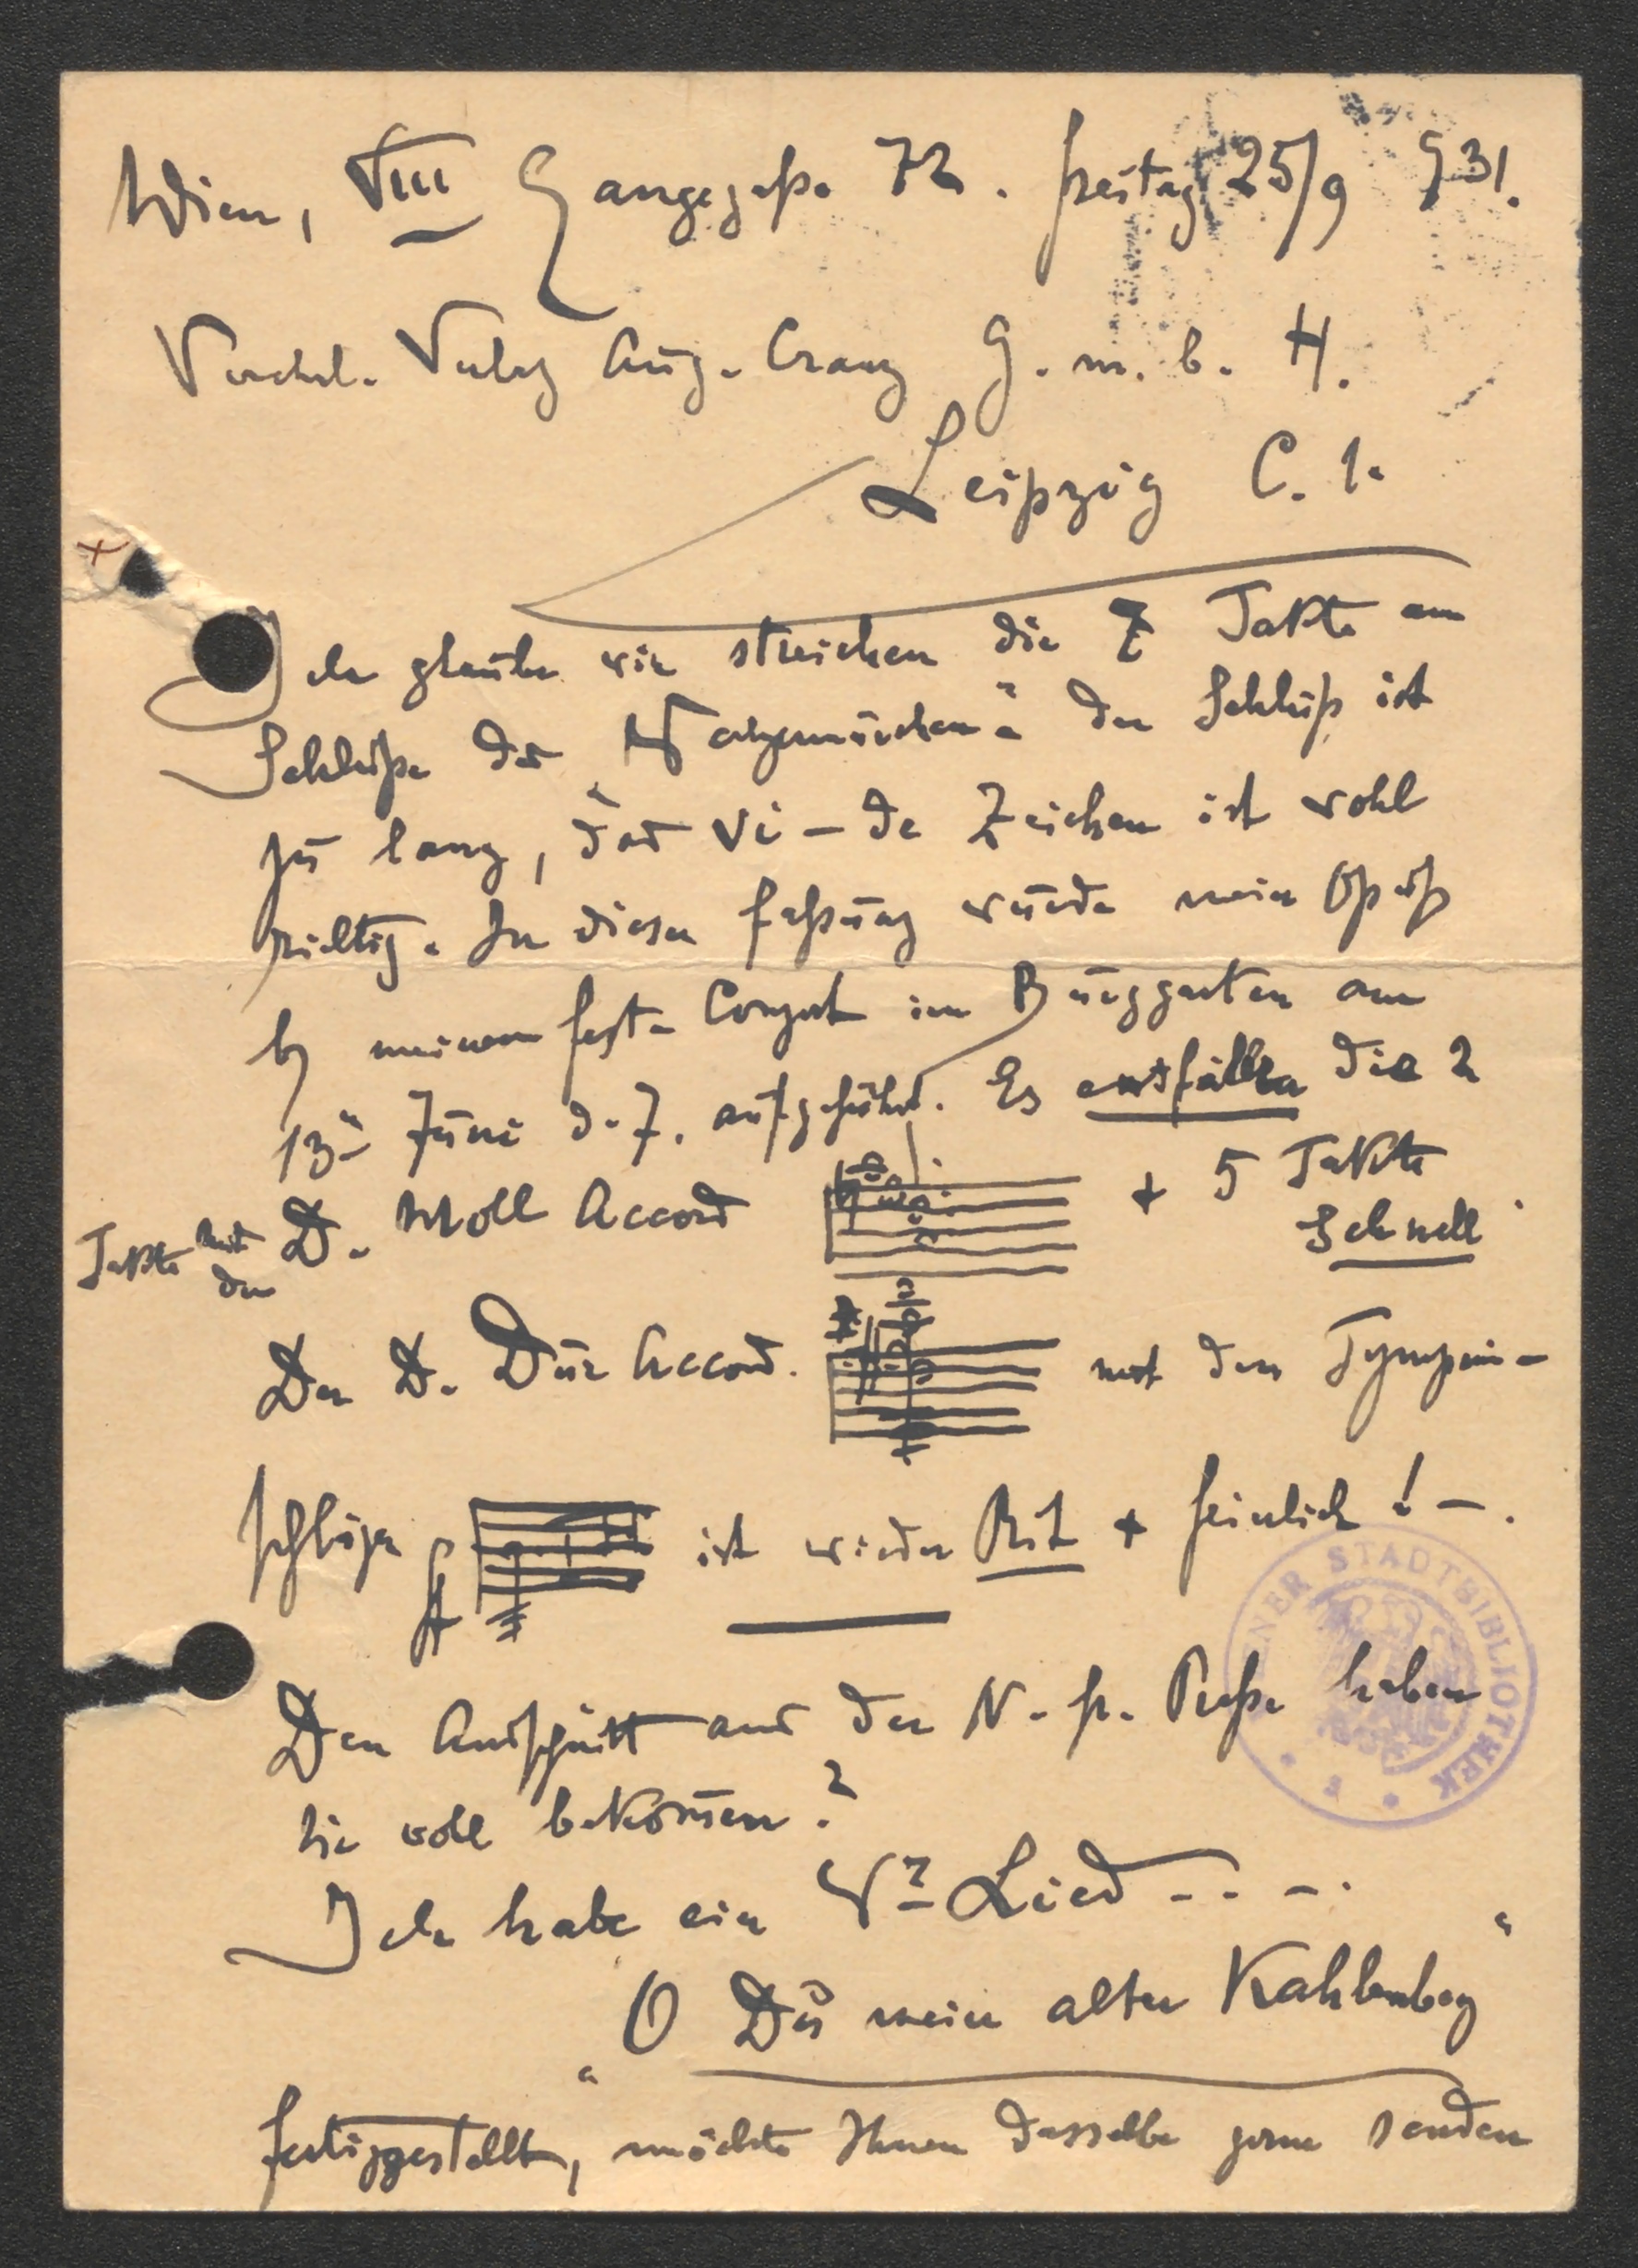 Wien, VIII Langegaße 72. Freitag 25/9 931.
Verehrl. Verlag Aug. Cranz G.m.b.H.
Leipzig C.1.
Ich glaube wir streichen die 7 Takte am
Schluße des der Schluß ist
zu lang, das vi-de Zeichen ist wohl
richtig. In dieser Faßung wurde mein Opus
b/ meinem Fest-Conzert im Burggarten am
13ⁿ Juni d. J. aufgeführt. Es entfallen die 2
Takte mit der D. Moll Accord + 5 Takte
Schnell
Der D. Dur Accord. mit den Tympani-
schläge ist wieder Rit + feierlich! -.
Den Ausschnitt aus der N. fr. Preße haben
Sie wohl bekom̄en?
Ich habe ein Wr Lied - - - .
„O Du mein alter Kahlenberg"
fertiggestellt, möchte Ihnen dasselbe gerne senden
WIENER STADTBIBLIOTHEK